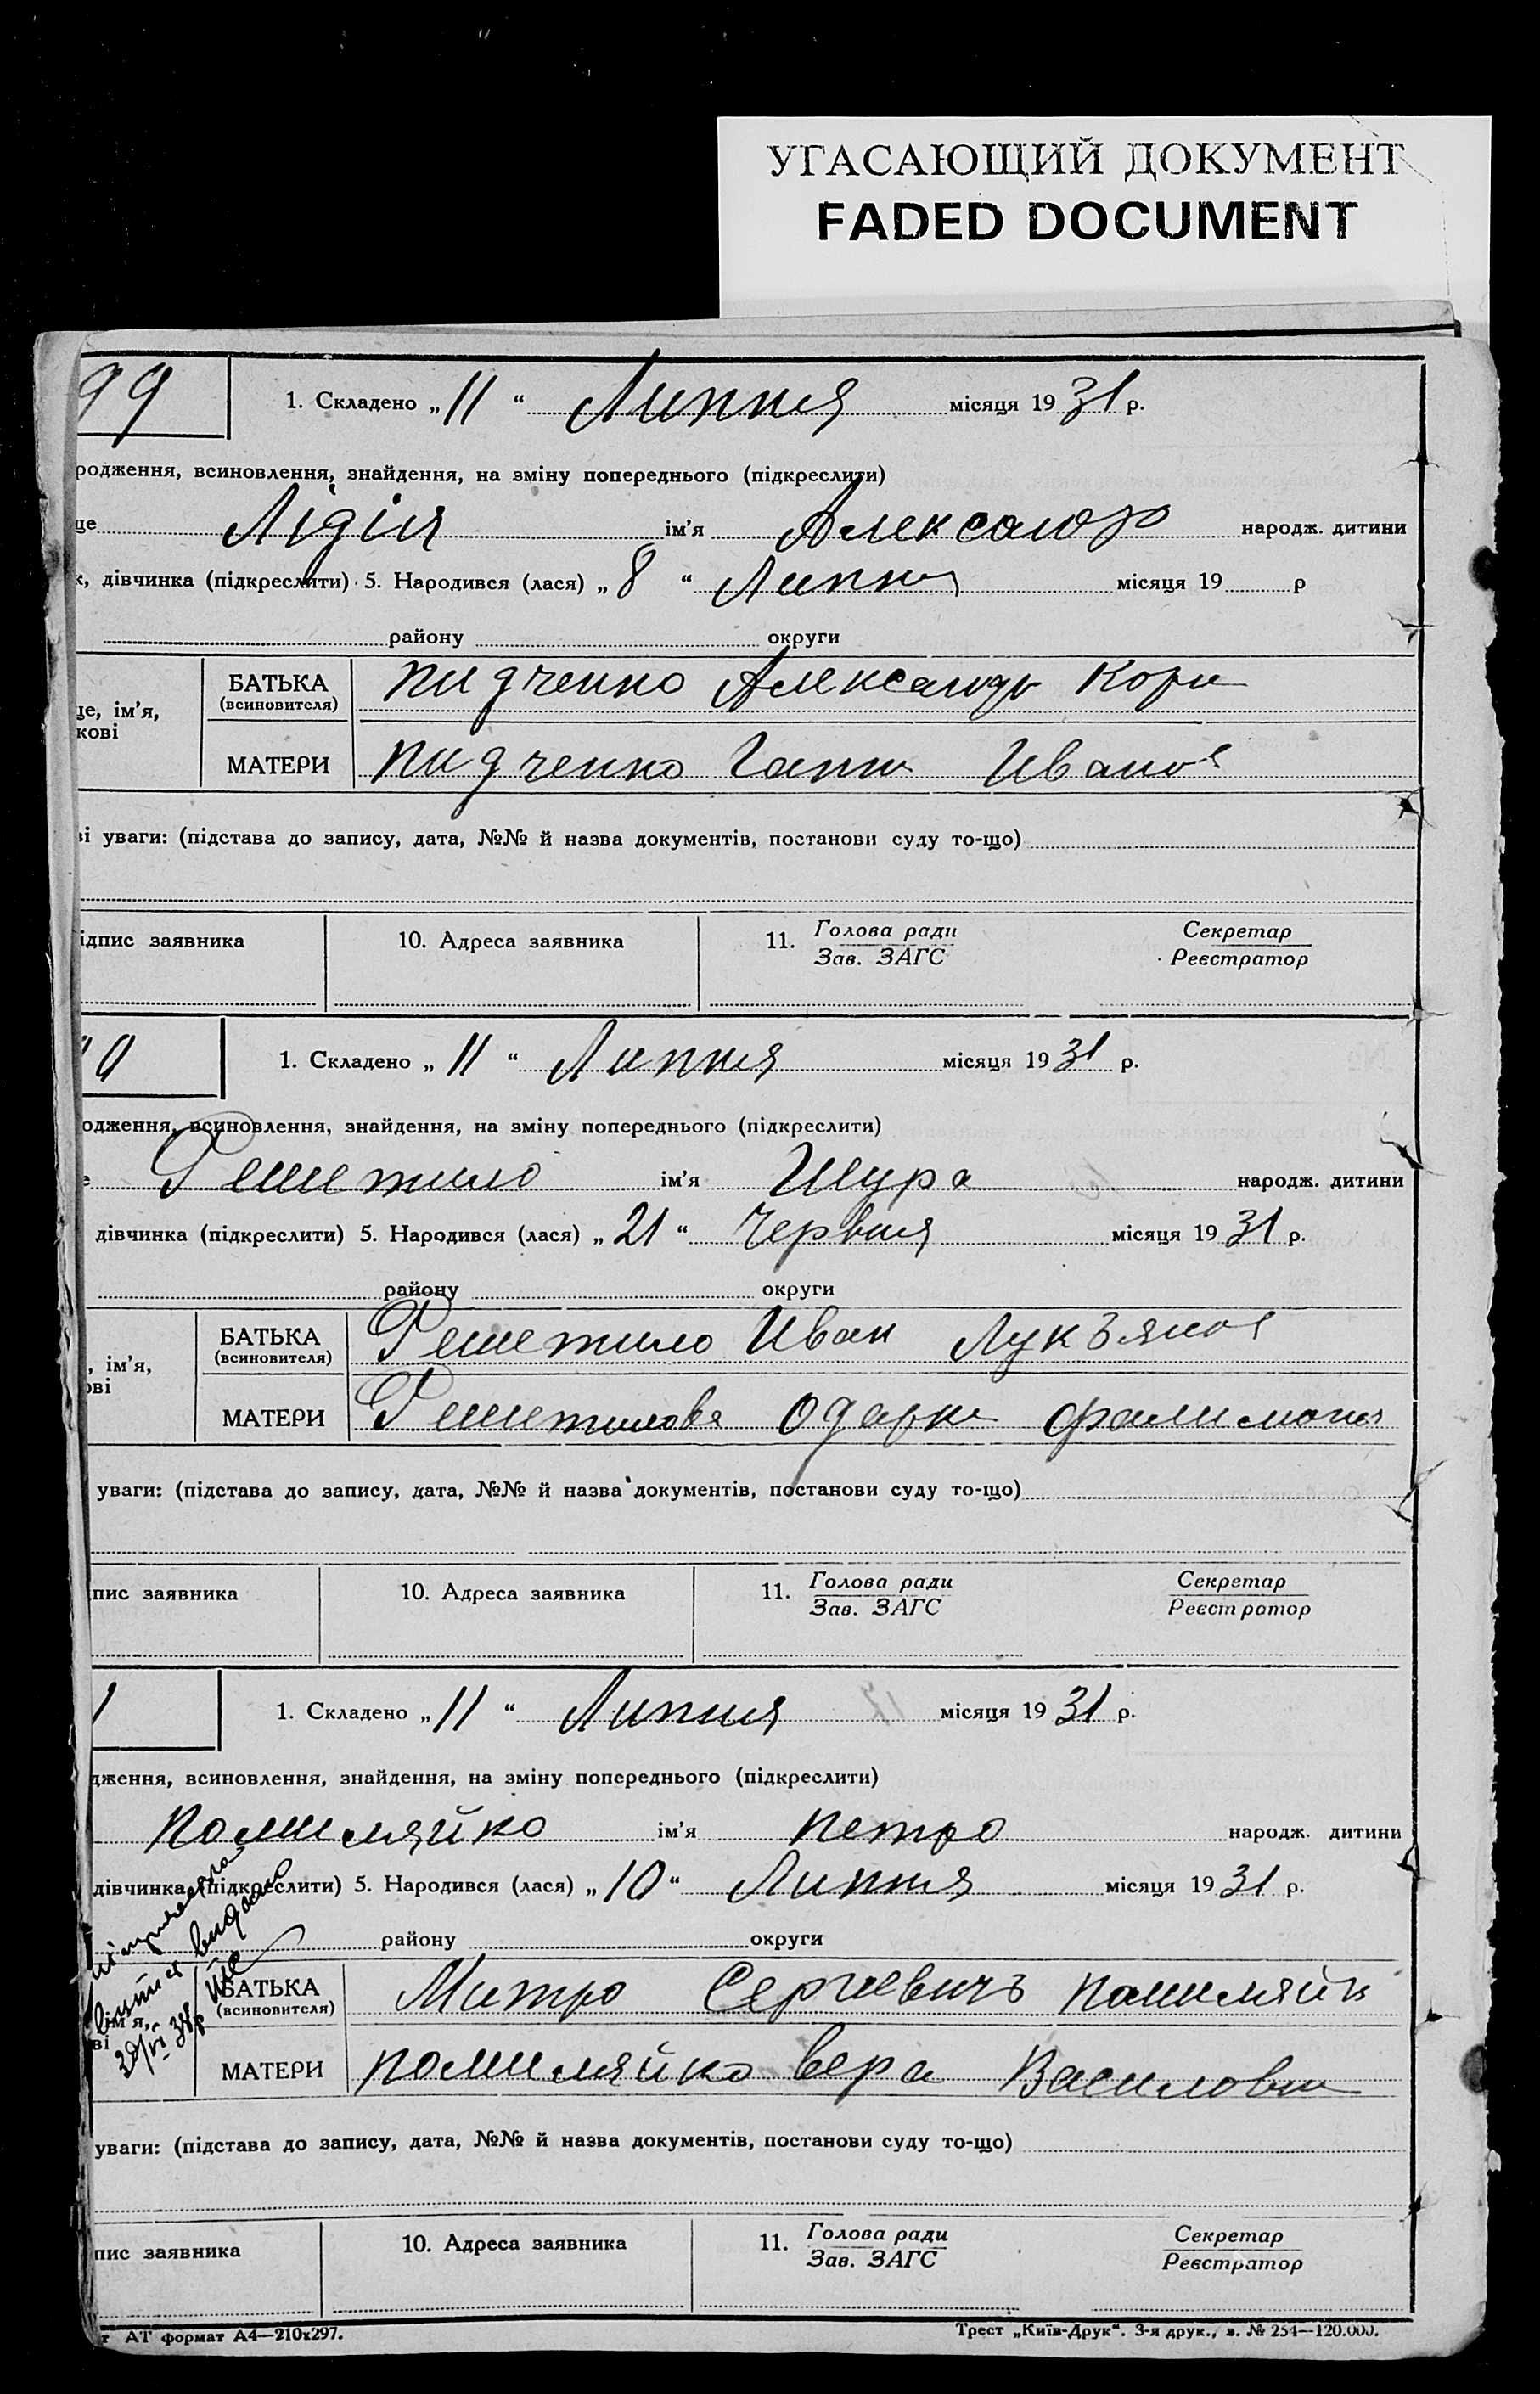 УГАСАЮЩИЙ ДОКУМЕНТ
FADED DOCUMENT
99 1. Складено „ 11 “ Липня місяця 19 31 р.
родження, всиновлення, знайдення, на зміну попереднього (підкреслити)
це Лідія ім'я Александр народж. дитини
к, дівчинка (підкреслити) 5. Народився (лася) „ 8 “ Липня місяця 19 р
району округи
БАТЬКА пидченко Александр Корн
(всиновителя)
це, ім'я,
кові
МАТЕРИ пидченко Ганна Иванов
ві уваги: (підстава до запису, дата, №№ й назва документів, постанови суду то-що)
ідпис заявника 10. Адреса заявника 11. Голова ради Секретар
Зав. ЗАГС Реєстратор
1. Складено „ 11 “ Липня місяця 19 31 р.
одження, всиновлення, знайдення, на зміну попереднього (підкреслити)
е Решетило ім'я Шура народж. дитини
дівчинка (підкреслити) 5. Народився (лася) „ 21 “ Червня місяця 19 31 р.
району округи
БАТЬКА Решетило Иван Лукъянов
(всиновителя)
, ім'я,
ові
МАТЕРИ Решетилова Одарка Филимона
уваги: (підстава до запису, дата, №№ й назва документів, постанови суду то-що)
пис заявника 10. Адреса заявника 11. Голова ради Секретар
Зав. ЗАГС Реєстратор
1 1. Складено „ 11 “ Липня місяця 19 31 р.
дження, всиновлення, знайдення, на зміну попереднього (підкреслити)
помиляйко ім'я петро народж. дитини
дівчинка (підкреслити) 5. Народився (лася) „ 10 “ Липня місяця 19 31 р.
району округи
БАТЬКА Митро Сергиевичъ помиляйк
(всиновителя)
ім'я,
ві
МАТЕРИ помиляйко вера Василовна
уваги: (підстава до запису, дата, №№ й назва документів, постанови суду то-що)
пис заявника 10. Адреса заявника 11. Голова ради Секретар
Зав. ЗАГС Реєстратор
т АТ формат А4—210х297. Трест „Київ-Друк“. 3-я друк., з. № 254—120.000.